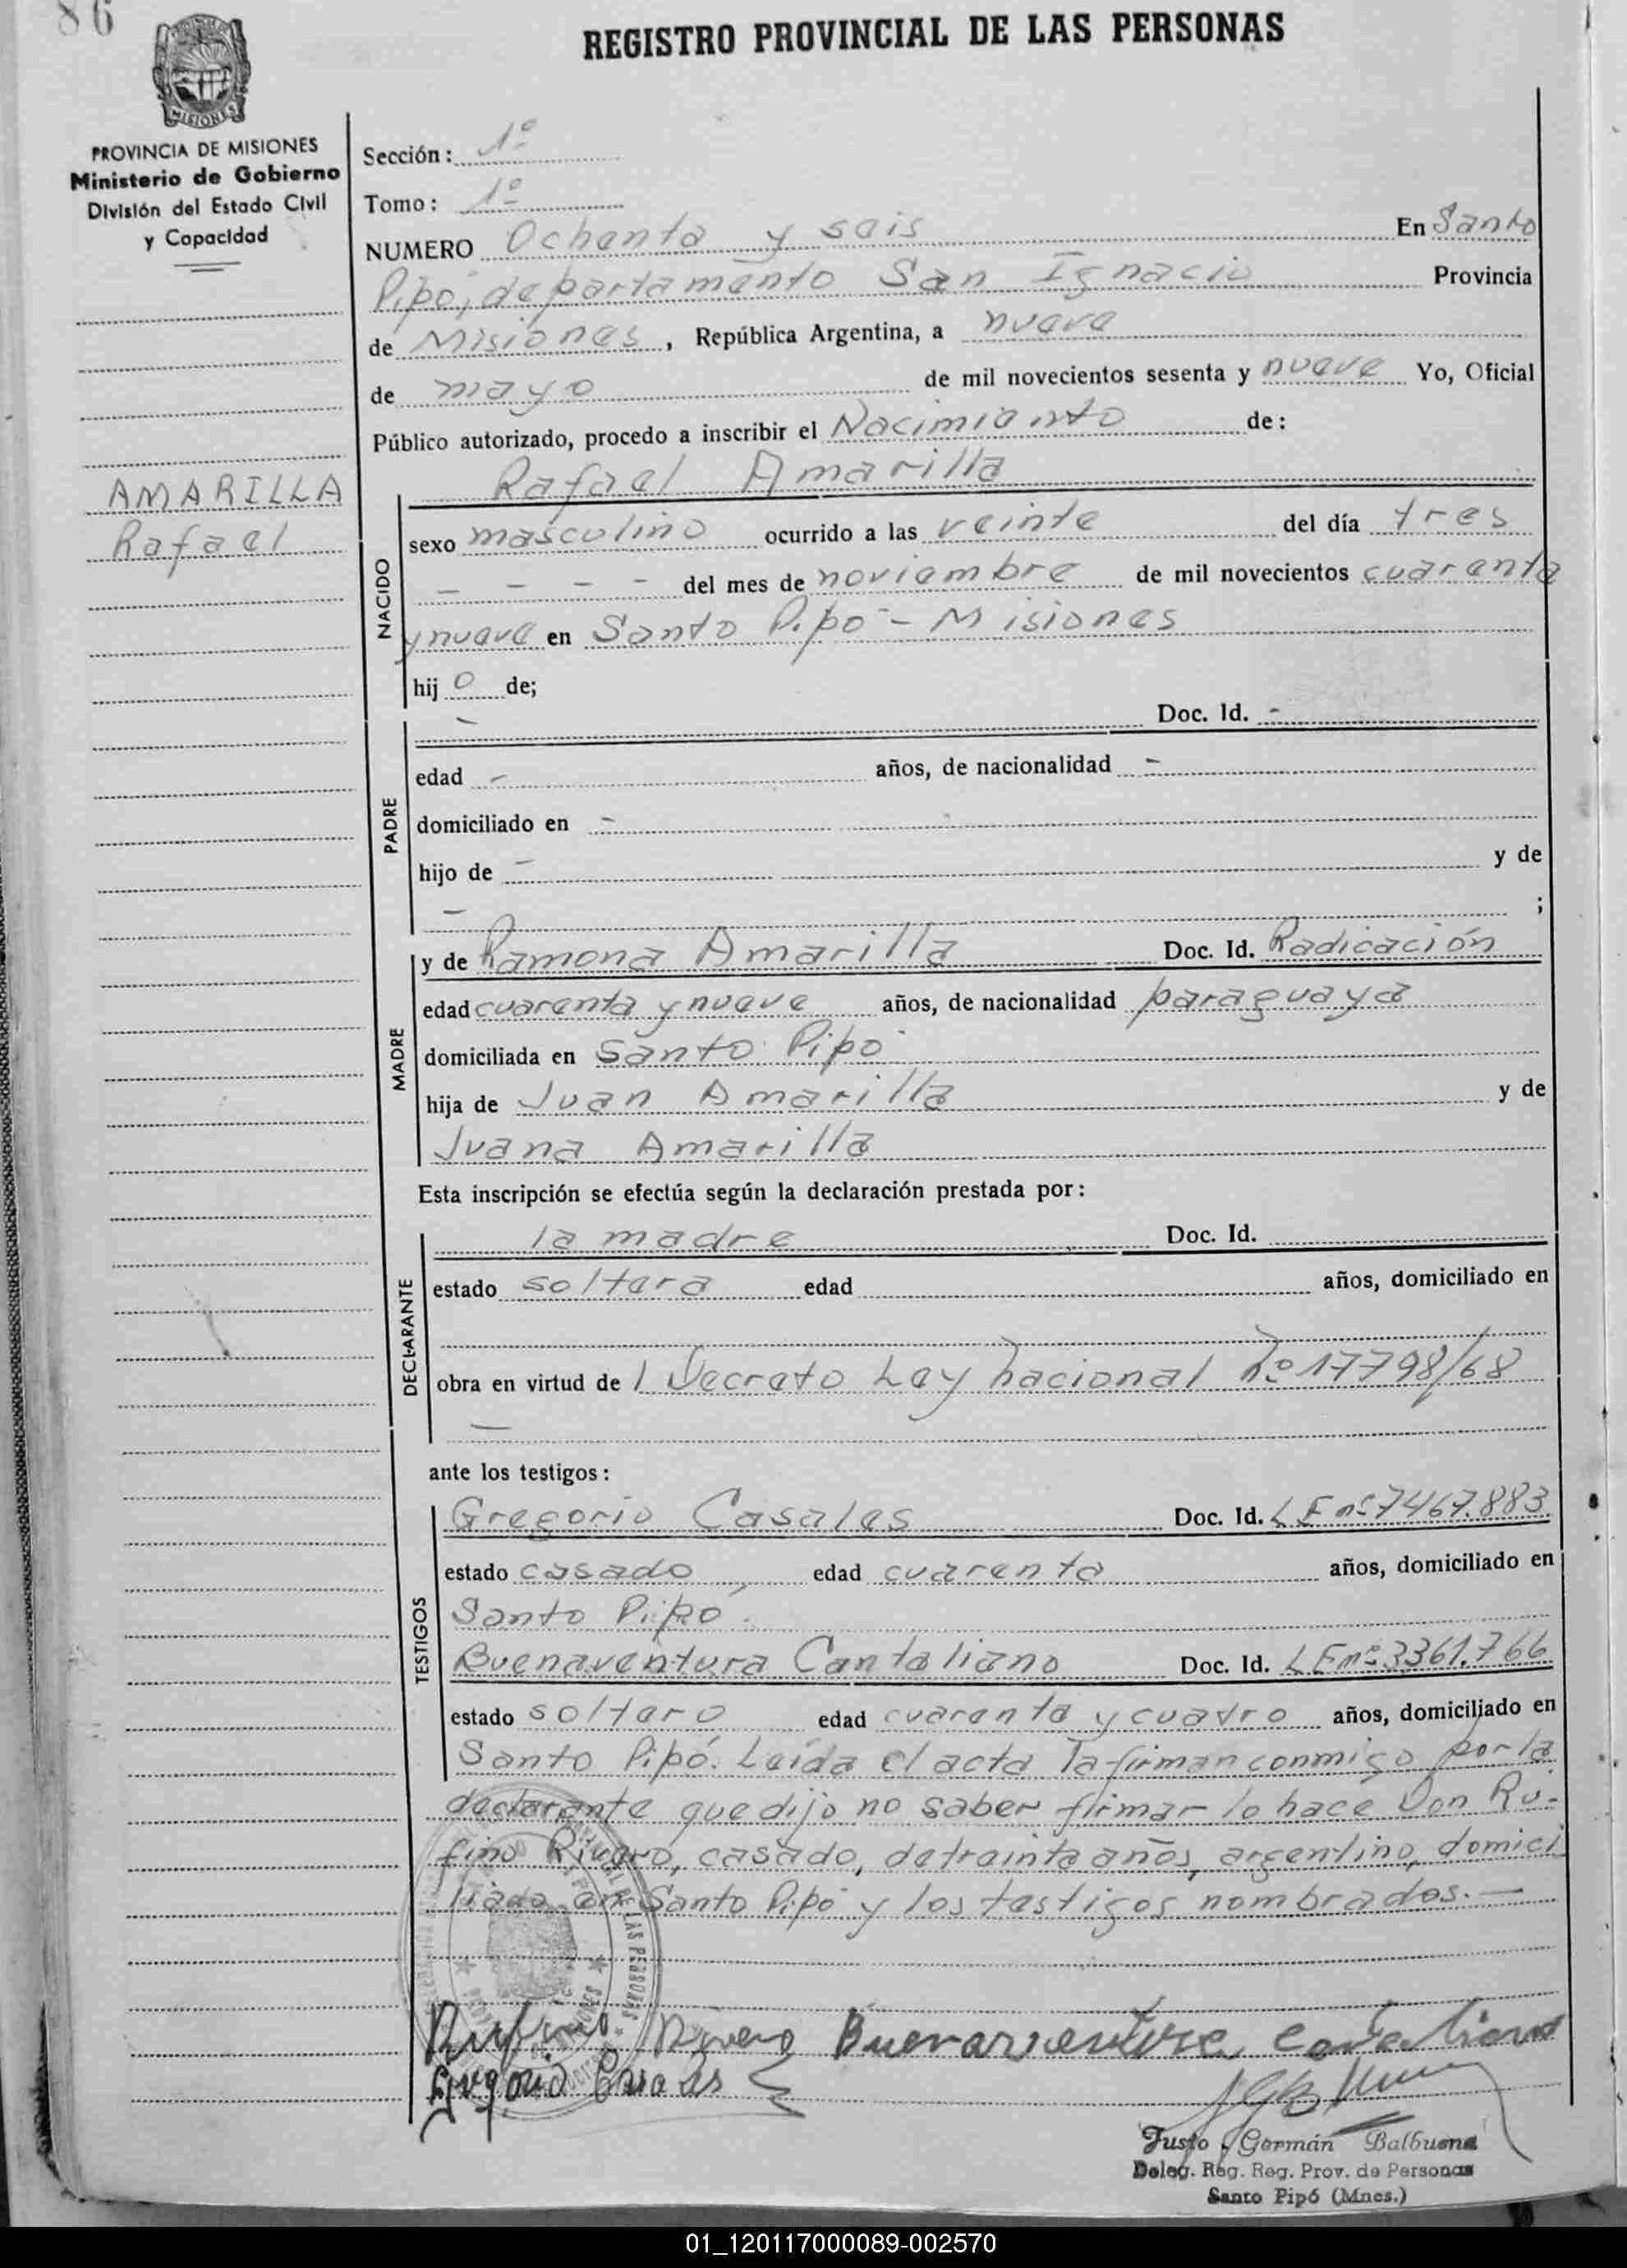 86
REGISTRO PROVINCIAL DE LAS PERSONAS
MISIONES
PROVINCIA DE MISIONES
Ministerio de Gobierno
División del Estado Civil
y Capacidad
AMARILLA
Rafael
Sección: 1º
Tomo: 1º
NUMERO Ochenta y seis En Santo
Pipó, departamento San Ignacio Provincia
de Misiones, República Argentina, a nueve
de mayo de mil novecientos sesenta y nueve Yo, Oficial
Público autorizado, procedo a inscribir el Nacimiento de:
Rafael Amarilla
NACIDO
sexo masculino ocurrido a las veinte del día tres
- - - del mes de noviembre de mil novecientos cuarenta
y nueve en Santo Pipó - Misiones
hijo de;
PADRE
- Doc. Id. -
edad - años, de nacionalidad -
domiciliado en -
hijo de - y de
- ;
MADRE
y de Ramona Amarilla Doc. Id. Radicación
edad cuarenta y nueve años, de nacionalidad paraguaya
domiciliada en Santo Pipó
hija de Juan Amarilla y de
Juana Amarilla
Esta inscripción se efectúa según la declaración prestada por:
DECLARANTE
la madre Doc. Id.
estado soltera edad años, domiciliado en
obra en virtud del Decreto Ley nacional nº 17798/68
—
ante los testigos:
TESTIGOS
Gregorio Casales Doc. Id. LE nº 7467.883
estado casado edad cuarenta años, domiciliado en
Santo Pipó.
Buenaventura Cantaliano Doc. Id. LE nº 3361.766
estado soltero edad cuarenta y cuatro años, domiciliado en
Santo Pipó. Leída el acta la firman conmigo por la
declarante que dijo no saber firmar lo hace Don Ru-
fino Rivero, casado, de treinta años, argentino, domici
liado en Santo Pipó y los testigos nombrados. —
DE LAS PERSONAS
Rufino Rivero Buenaventura Cantaliano
Gregorio Casales
Justo Germán Balbuena
Deleg. Reg. Reg. Prov. de Personas
Santo Pipó (Mnes.)
01_120117000089-002570